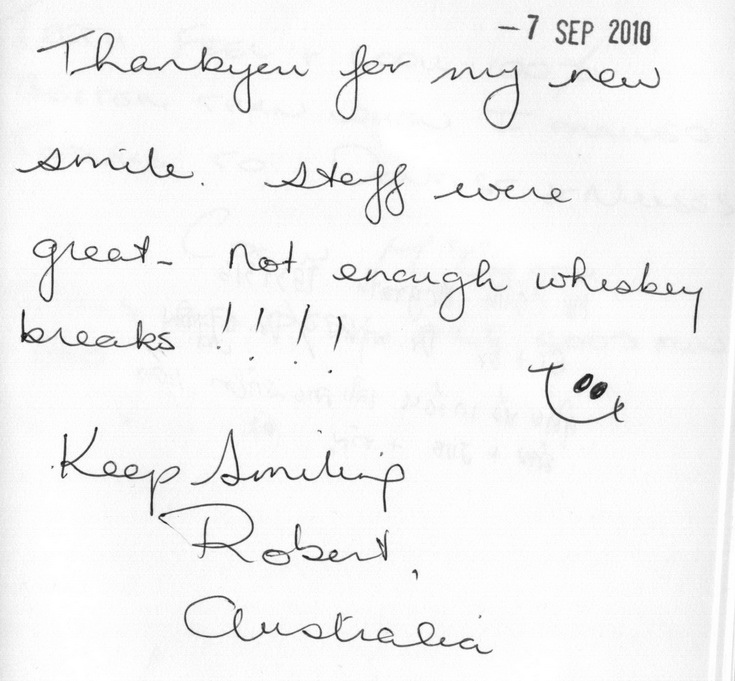 -7 SEP 2010
Thankyou for my new
smile. Staff were
great- not enough whiskey
breaks !!!!
Keep Smiling
Robert,
Australia